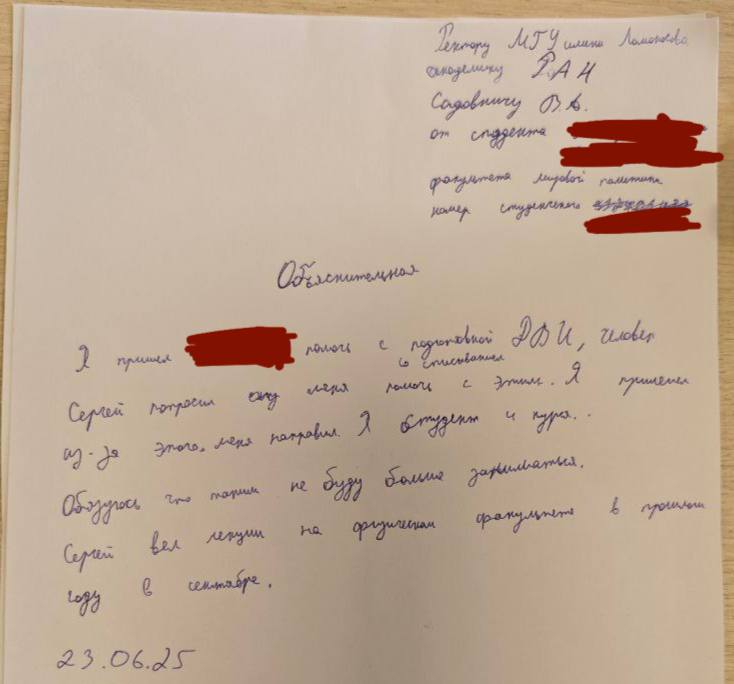 Ректору МГУ имени Ломоносова
академику РАН
Садовничу В.А.
от студента
факультета мировой политики
номер студенческого
Объяснительная
Я пришел помочь с подготовкой ДВИ, человек
со списыванием
Сергей попросил меня помочь с этим. Я пришел
из-за этого, меня направил Я студент 4 курса.
Обязуюсь что таким не буду больше заниматься.
Сергей вел лекции на физическом факультете в прошлом
году в сентябре.
23.06.25